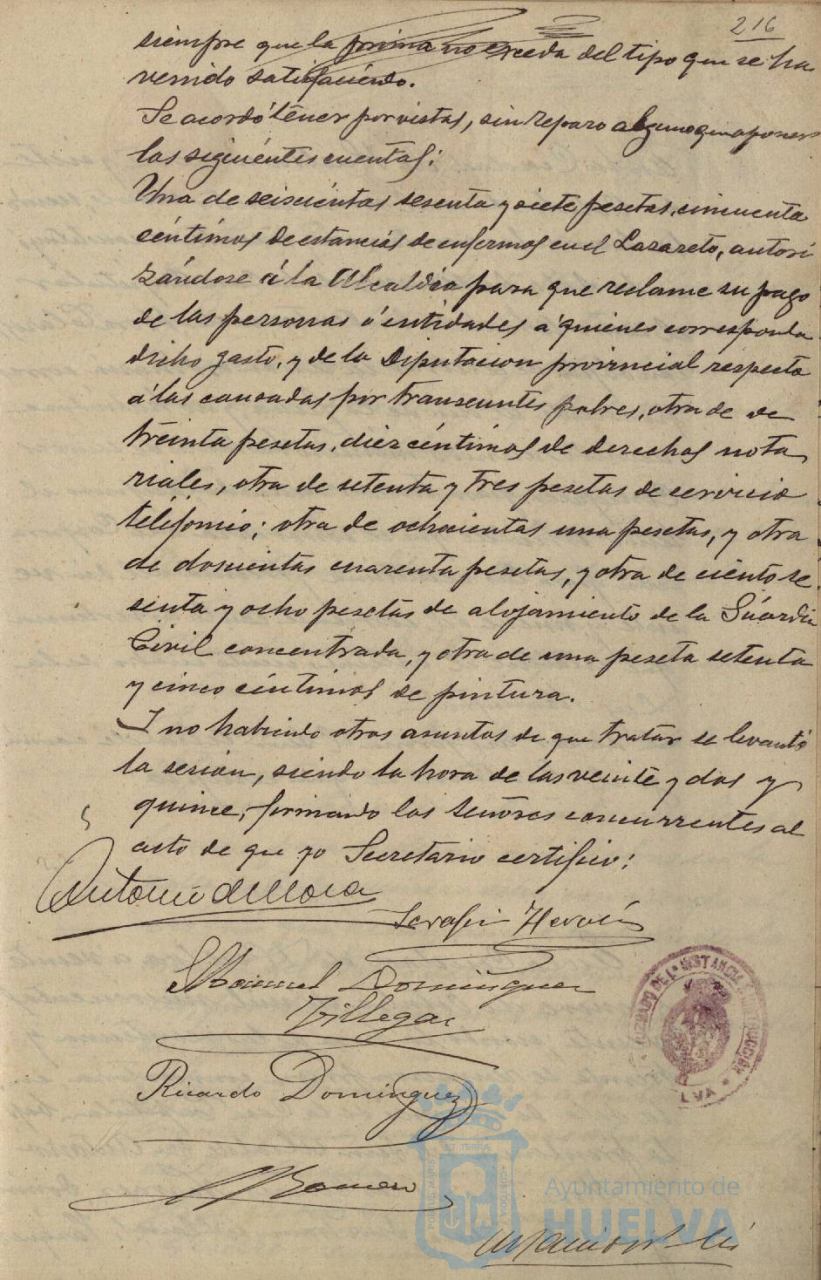 216
siempre que la prima no exceda del tipo que se ha
venido satisfaciendo.
Se acordó tener por vistas, sin reparo alguno que oponer
las siguientes cuentas:
Una de seiscientas sesenta y siete pesetas, cincuenta
céntimos de estancias de enfermos en el Lazareto, autori
zándose á la Alcaldia para que reclame su pago
de las personas ó entidades á quienes corresponda
dicho gasto, y de la Diputacion provincial respecto
á las causadas por transeuntes pobres, otra de de
treinta pesetas, diez céntimos de derechos nota
riales, otra de setenta y tres pesetas de servicio
teléfonico; otra de ochocientas una pesetas, y otra
de doscientas cuarenta pesetas, y otra de ciento se
senta y ocho pesetas de alojamiento de la Guardia
Civil concentrada, y otra de una peseta setenta
y cinco céntimos de pintura.
Y no habiendo otros asuntos de que tratar se levantó
la sesion, siendo la hora de las veinte y dos y
quince, firmando los señores concurrentes al
acto de que yo Secretario certifico:
Antonio de Mora
Serafin
Manuel Dominguez
Villegas
Ricardo Dominguez
Romero
JUZGADO DE 1ª INSTANCIA INSTRUCCIÓN
Ayuntamiento de
HUELVA